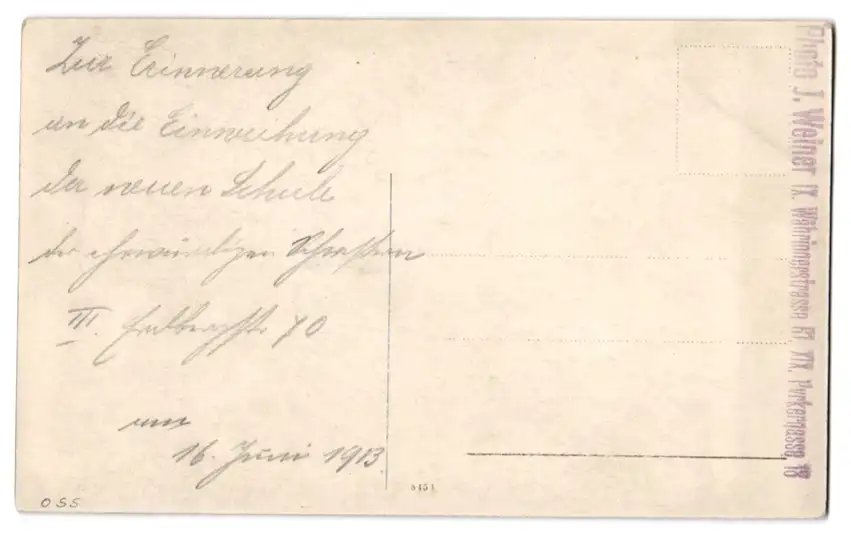 Zur Erinnerung
an die Einweihung
der neuen Schule
der ehrwürdigen Schwestern
III. Erdbergstr. 70
am
16. Juni 1913
OSS
8451
Photo J. Weiner IX. Währingerstrasse 67, XIX. Pyrkergasse 13